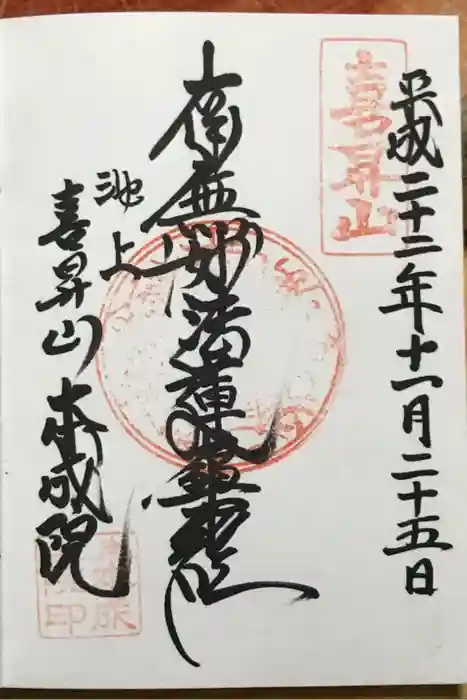 喜昇山
平成二十二年十一月二十五日
南無妙法蓮華経
池上
喜昇山 本成院